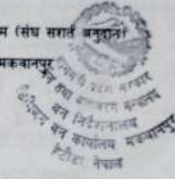 म (संघ सशर्त अनुदान)
मकवानपुर
वन निर्देशनालय
डिभिजन वन कार्यालय मकवानपुर
हेटौंडा नेपाल